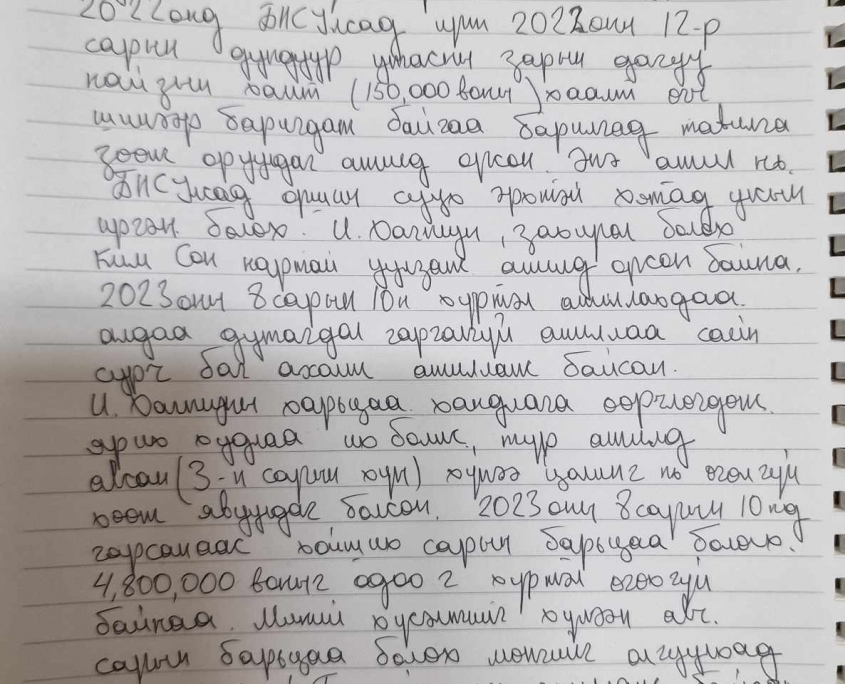 2022онд БНСУлсад ирж 2022 оны 12-р
сарын дундуур утасны зарын дагуу
найзын хамт (150,000 воны) хаалт өгч
шинээр баригдаж байгаа барилгад тавилга
зөөж оруулдаг ажилд орсон. Энэ ажил нь
БНСУлсад оршин суух эрхтэй хятад улсын
иргэн болох. И.Хагжун, захирал болох
Ким Сон нартай уулзаж ажилд орсон байна.
2023 оны 8 сарын 10н хүртэл ажиллахдаа.
алдаа дутагдал гаргалгүй ажиллаа сайн
сурч бас ахалж ажиллаж байсан.
И. харьцаа хандлага өөрчлөгдөж.
ярих худлаа их болж, түр ажилд
авсан (3-н сарын хүн) хүнээ цалинг нь өгөлгүй
хөөж явуулдаг болсон. 2023 оны 8 сарын 10нд
гарсанаас хойш сарын барьцаа болох.
4,800,000 воныг одоо г хүртэл өгөөгүй
байнаа. Миний хүсэлтийг хүлээн авч.
сарын барьцаа болох мөнгийг олгуулхад